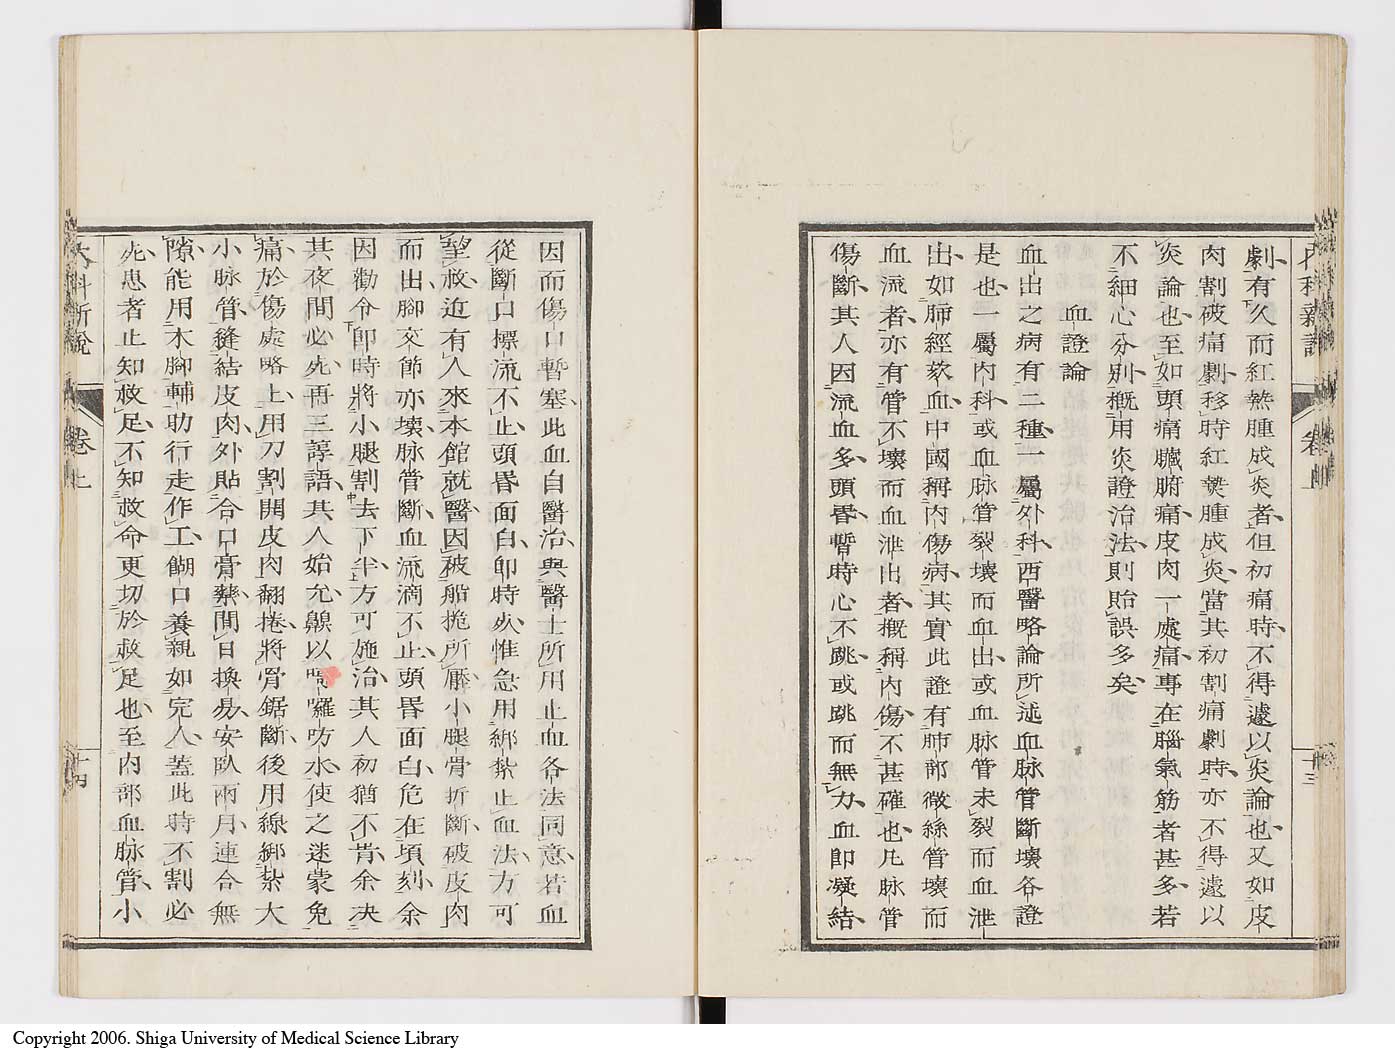 內科新說
卷上
十三
劇有久而紅𤍠腫成炎者但初痛時不得遽以炎論也又如皮
肉割破痛劇移時紅𤍠腫成炎當其初割痛劇時亦不得遽以
炎論也至如頭痛臟腑痛皮肉一處痛專在腦氣筋者甚多若
不細心分別槪用炎證治法則貽誤多矣
血證論
血出之病有二種一屬外科西醫略論所述血脉管斷壞各證
是也一屬內科或血脉管裂壞而血出或血脉管未裂而血泄
出如肺經欬血中國稱內傷病其實此證有肺部微絲管壞而
血流者亦有管不壞而血泄出者槪稱內傷不甚確也凡脉管
傷斷其人因流血多頭昏暫時心不跳或跳而無力血卽凝結
因而傷口暫塞此血自醫治與醫士所用止血各法同意若血
從斷口摽流不止頭昏面白卽時𣦸惟急用綁紮止血法方可
望救近有人來本館就醫因被船桅所壓小腿骨折斷破皮肉
而出腳交節亦壞脉管斷血流滴不止頭昏面白危在頃刻余
因勸令卽時將小腿割去下半方可施治其人初猶不肯余决
其夜間必𣦸再三諄語其人始允𩕳以嗎囉吩水使之迷蒙免
痛於傷處略上用刀割開皮肉翻捲將骨鋸斷後用線綁紮大
小脉管縫結皮肉外貼合口膏藥間日換易安臥兩月連合無
隙能用木腳輔助行走作工餬口養親如完人蓋此時不割必
𣦸患者止知救足不知救命更切於救足也至內部血脉管小
內科新說
卷上
十四
Copyright 2006. Shiga University of Medical Science Library